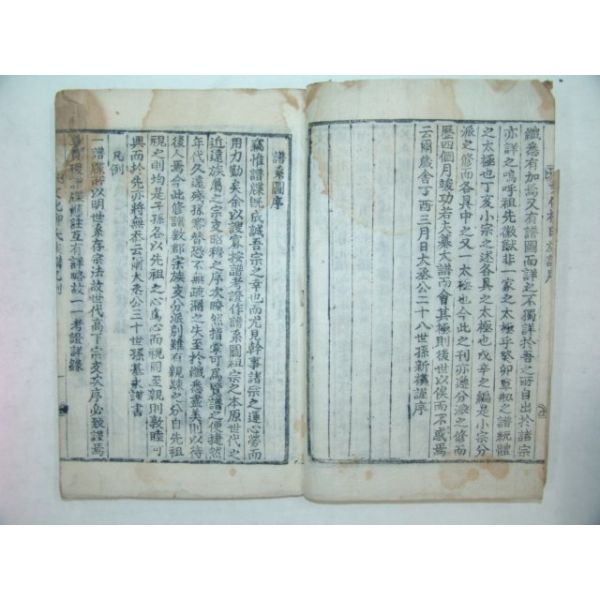 纖悉有加焉又有譜圖而詳之不獨詳於吾之所自出於諸宗
亦詳之嗚呼祖先徽猷非一家之太極乎癸卯
之譜統體
之太極也丁亥小宗之述各具之太極也戊辛之編是小宗分
派之修而各具中之又一太極也今此之刊亦遵分派之修而
歷四個月竣功若大槩大譜而會其極則後世以俟而不惑焉
云爾歲舍丁酉三月日太
公二十八世孫新
謹序
譜系圖序
竊惟譜牒旣成誠吾宗之幸也而尤見幹事諸宗之運心勞而
用力勤矣余以謏寡按譜考證作譜系圖祖宗之本原世代之
近遠族屬之宗支昭穆之序次瞭然指掌可爲
譜之便捷然
年代久遠殘孫
替恐不無疏漏之失至於纖悉盡美則以待
後人焉今此修譜數郡宗族支分派別雖有親疎之分自先祖
視之則均是子孫各以先祖之心爲心而視同至親則敦睦可
興而於先亦將無忝云爾太
公三十世孫基
謹書
凡例
一譜牒所以明世系存宗法故世代高下宗支次序必致謹焉
註互有詳略故一一考證詳錄